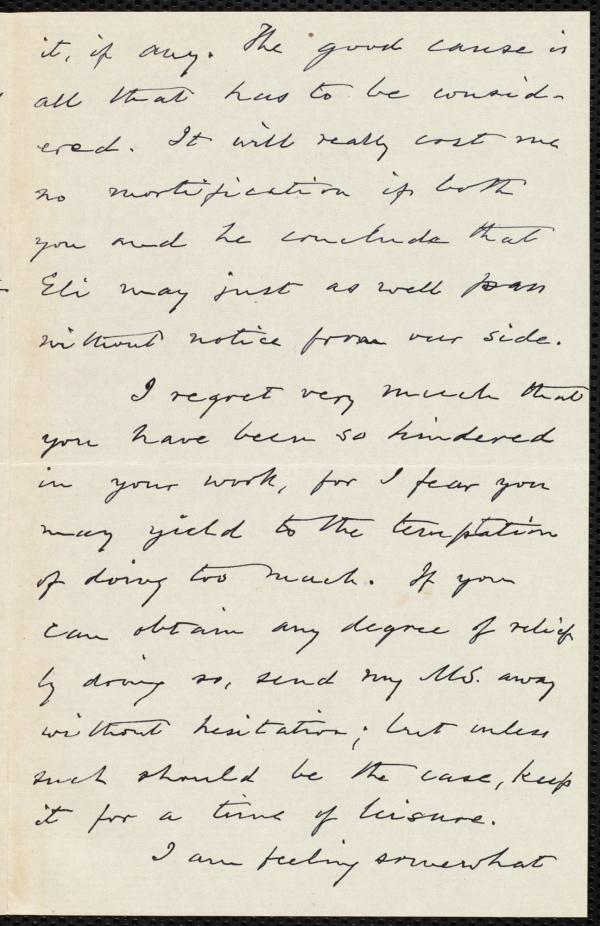 it, if any. The good cause is
all that has to be consid-
ered. It will really cost me
no mortification if both
you and he conclude that
Eli may just as well pass
without notice from our side.
I regret very much that
you have been so hindered
in your work, for I fear you
may yield to the temptation
of doing too much. If you
can obtain any degree of relief
by doing so, send my MS. away
without hesitation; but unless
such should be the case, keep
it for a time of leisure.
I am feeling somewhat